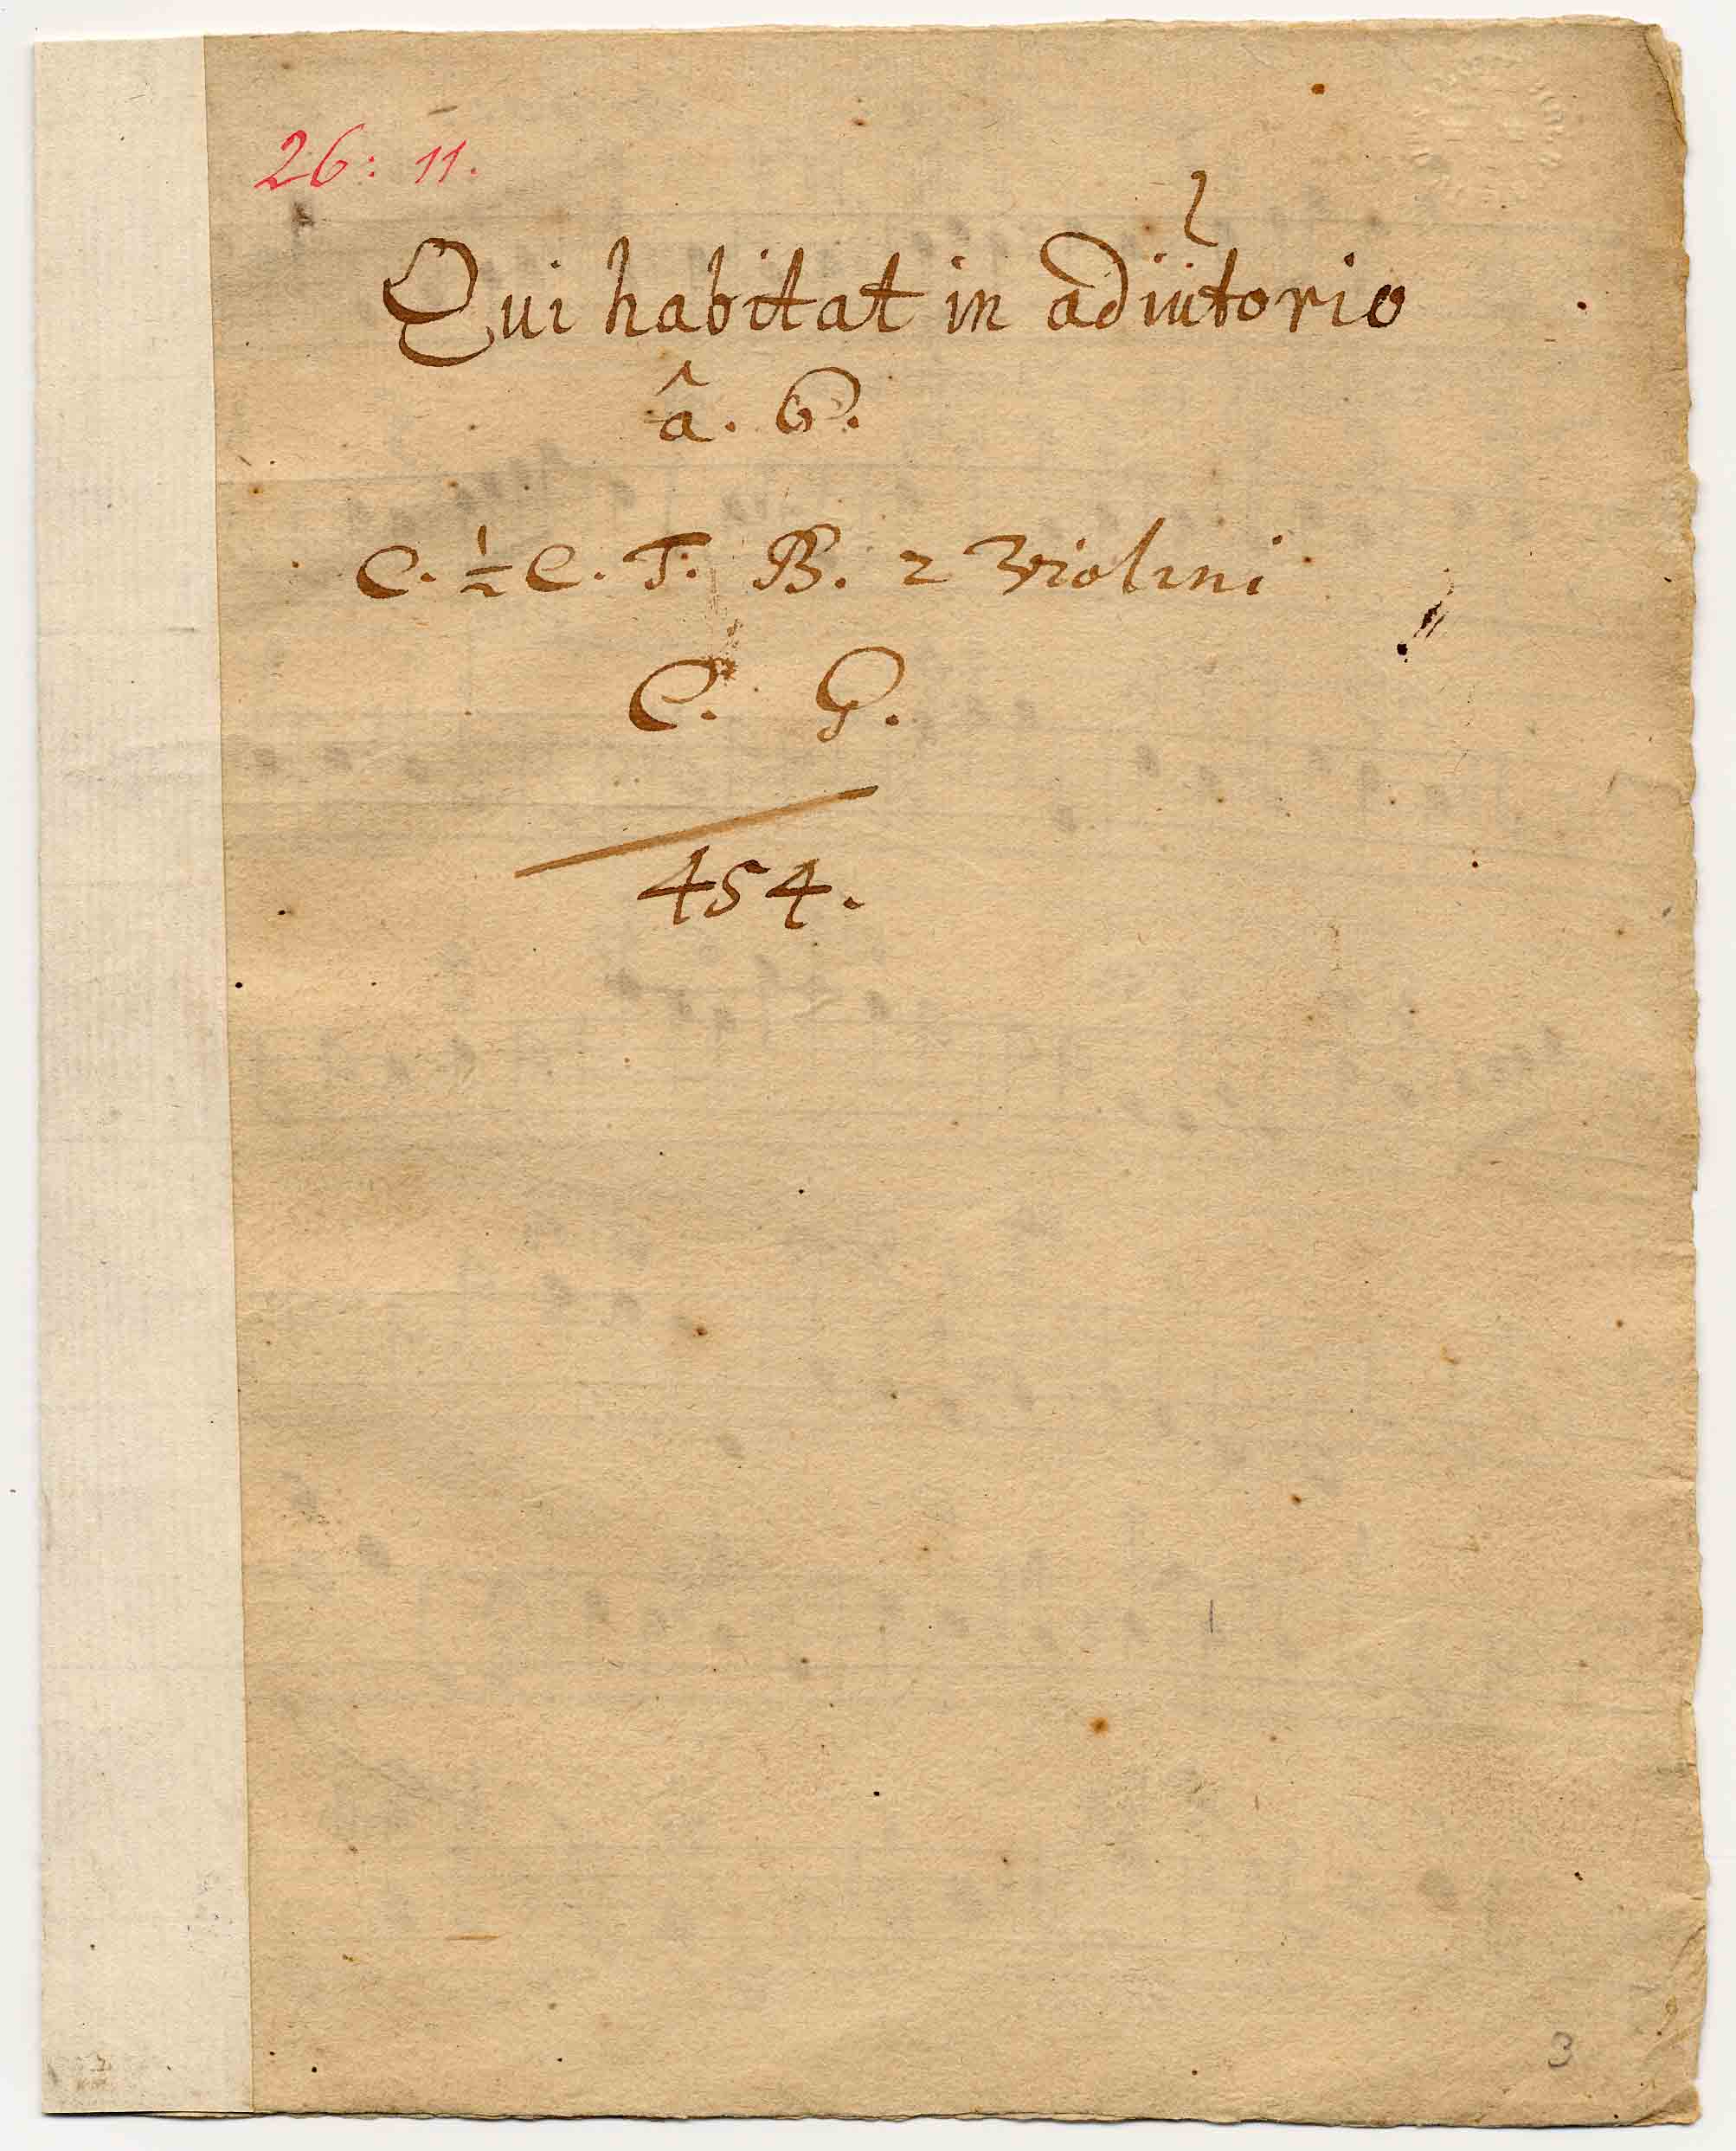 26: 11.
Qui habitat in adiutorio
â. 6.
C. ½ C. T. B. 2 Violini
C. G.
454.
3